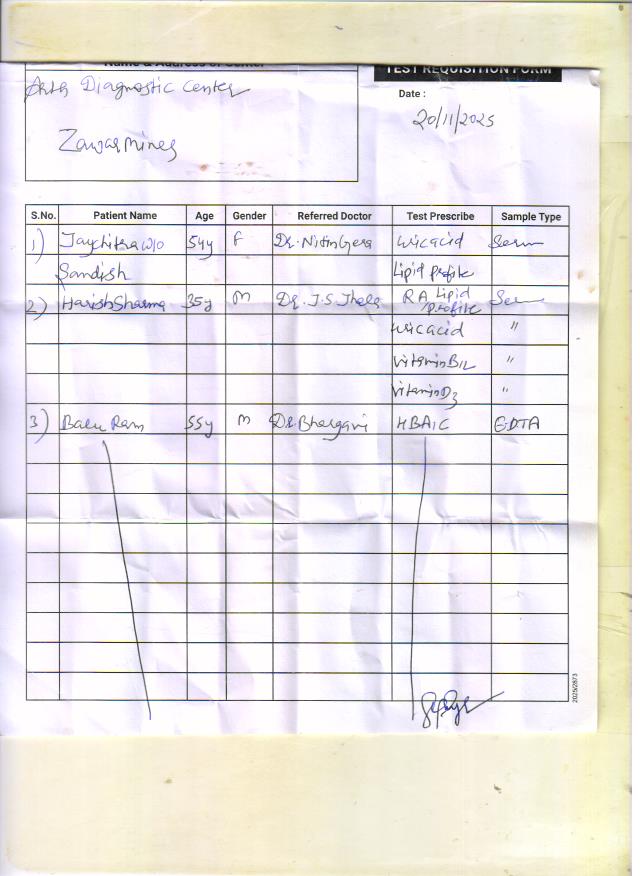 Name & Address of Center
TEST REQUISITION FORM
Arth Diagnostic Center
Zawarmines
Date :
20/11/2025
S.No. Patient Name Age Gender Referred Doctor Test Prescribe Sample Type
1) Jaychitra W/O 54y F Dr. Nitin Gera Uricacid Serum
Sandish Lipid Profile
2) Harish Sharma 35y M Dr. J.S. RA Lipid Profile Serum
Uricacid "
Vitamin B12 "
Vitamin D3 "
3) Balu Ram 55y M Dr. Bhargavi HBAIC EDTA
2025/2873